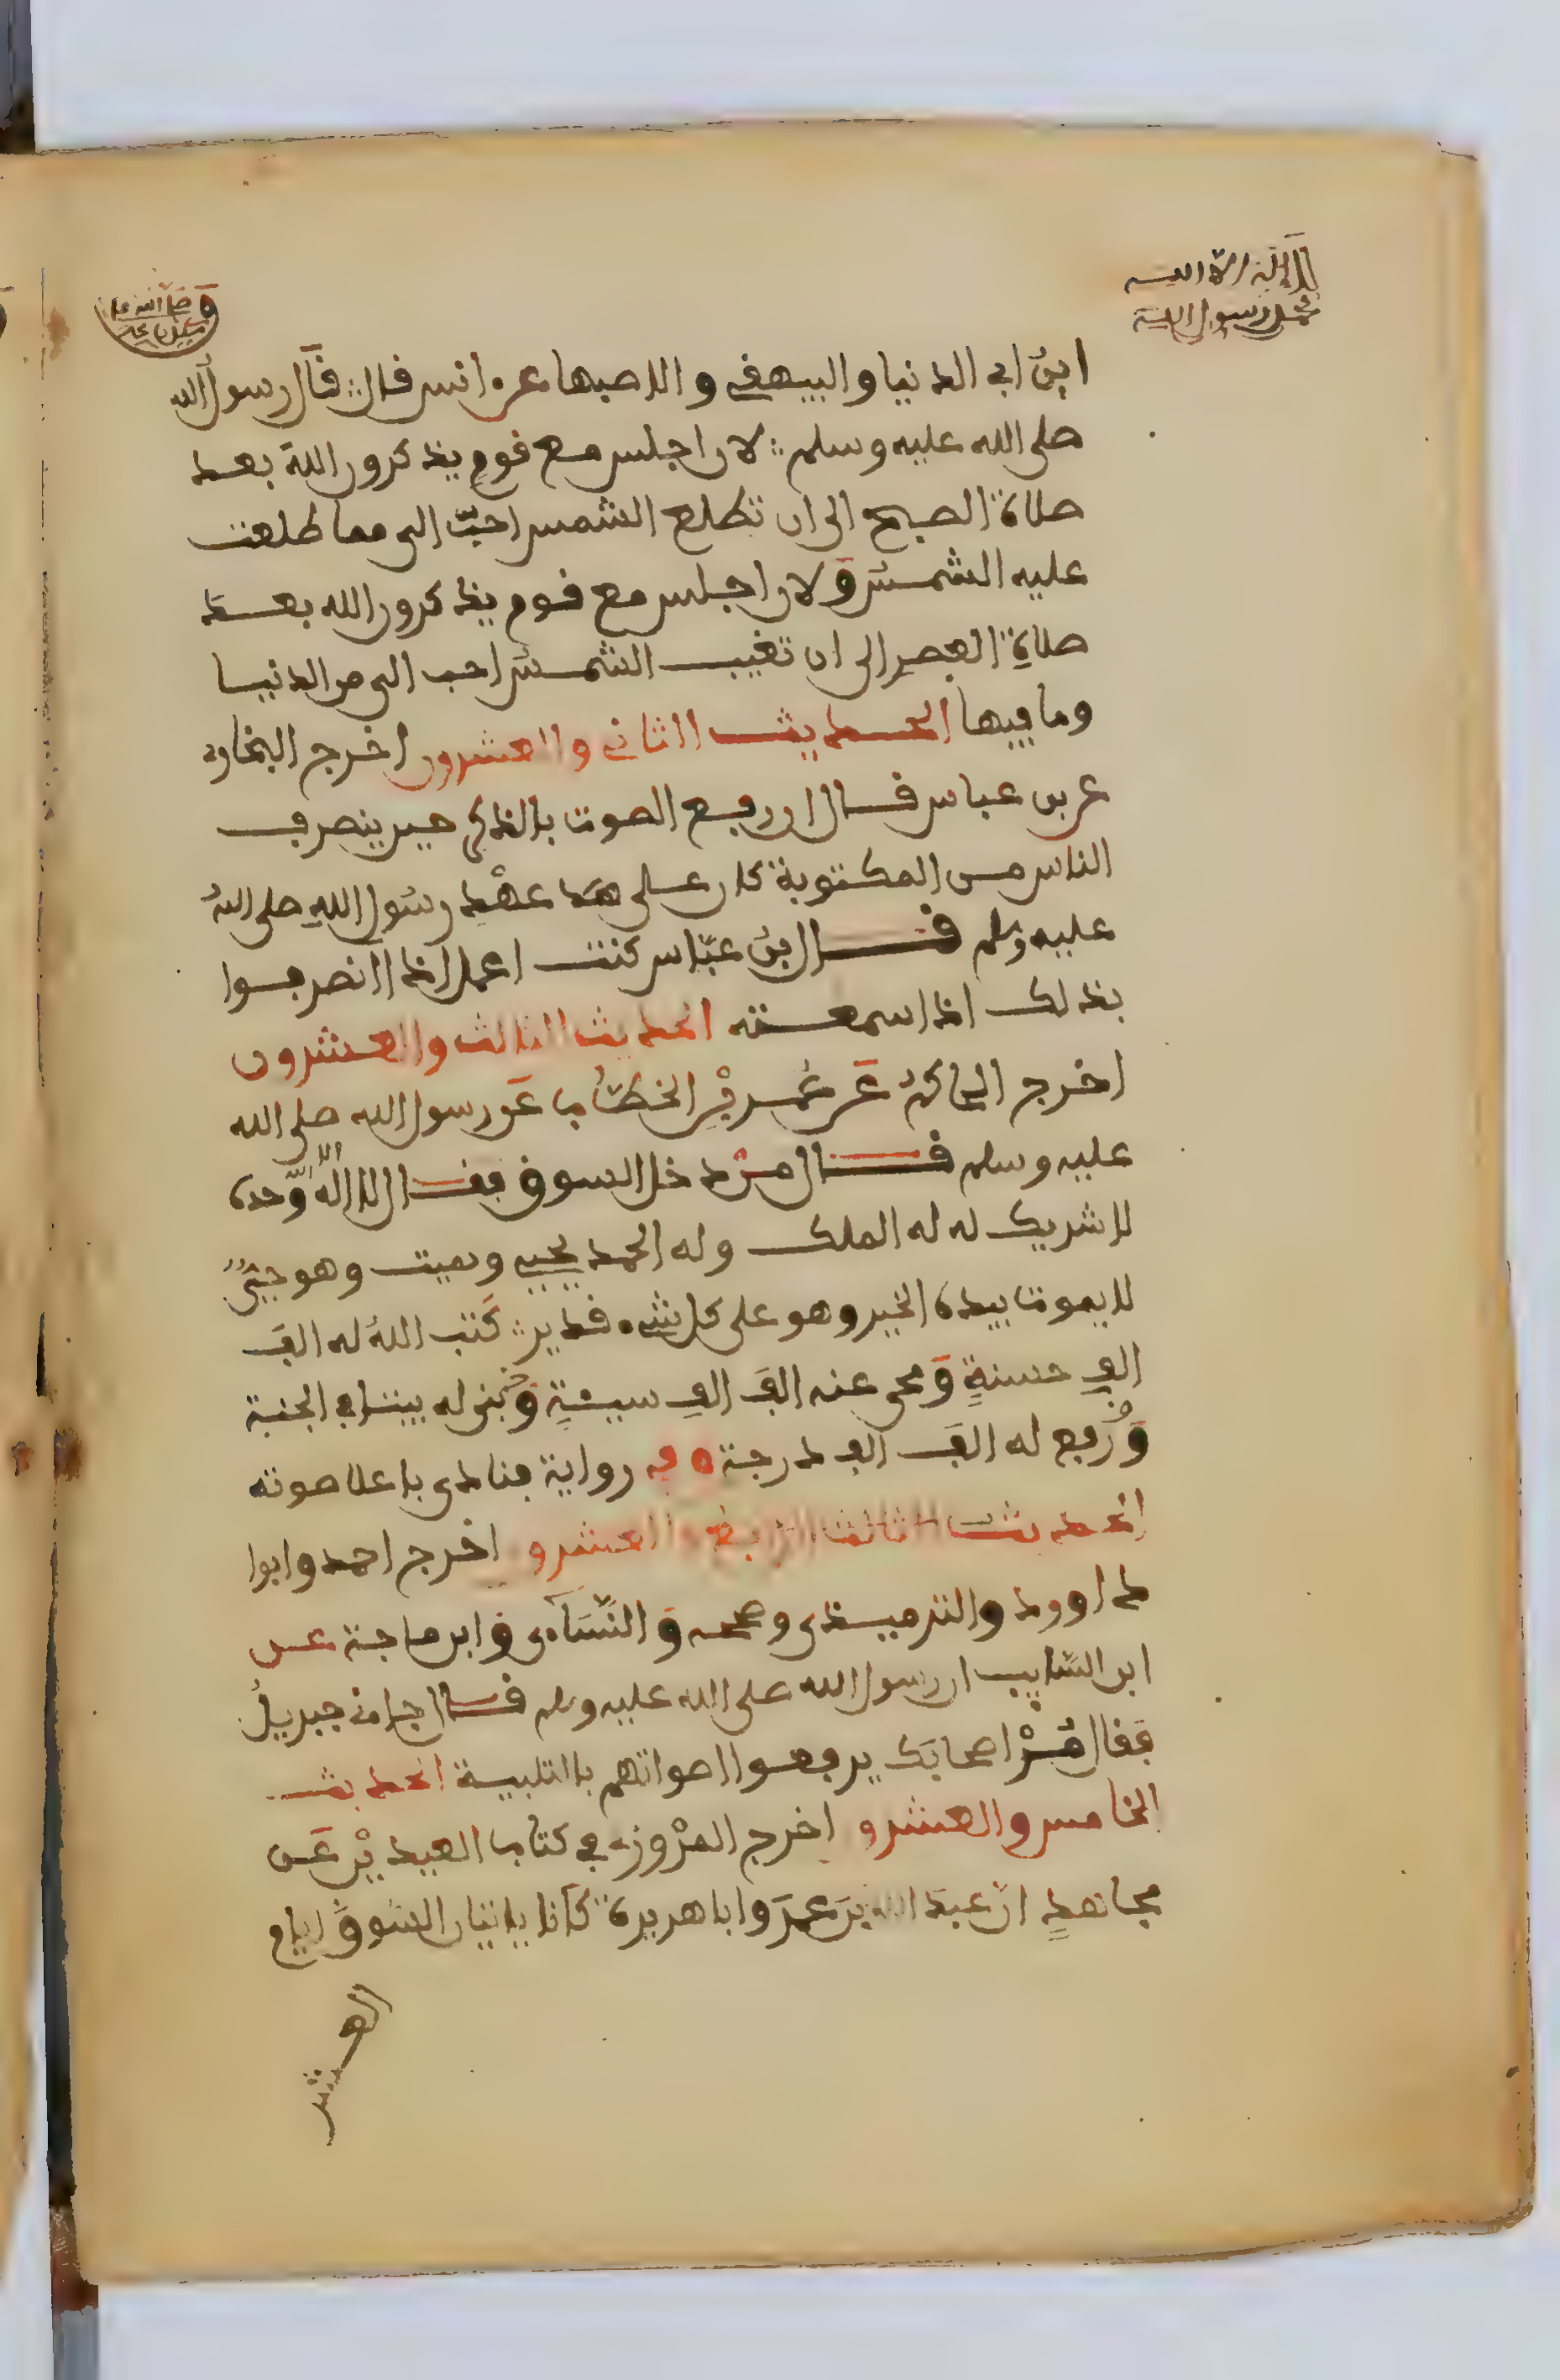 لا إله إلا الله
محمد رسول الله
ابن ابي الدنيا والبيهقي والاصبها عن انس قال قال رسول الله
صلى الله عليه وسلم لان اجلس مع قوم يذكرون الله بعد
صلاة الصبح الى ان تطلع الشمس احب الي مما طلعت
عليه الشمس ولان اجلس مع قوم يذكرون الله بعد
صلاة العصر الى ان تغيب الشمس احب الي من الدنيا
وما فيها الحديث الثاني والعشرون اخرج البخاري
عن بن عباس قال ان رفع الصوت بالذكر حين ينصرف
الناس من المكتوبة كان على عهد رسول الله صلى الله
عليه وسلم قال بن عباس كنت اعلم اذا انصرفوا
بذلك اذا سمعته الحديث الثالث والعشرون
اخرج الحاكم عن عمر بن الخطاب عن رسول الله صلى الله
عليه وسلم قال من دخل السوق فقال لا اله الا الله وحده
لا شريك له له الملك وله الحمد يحيي ويميت وهو حي
لا يموت بيده الخير وهو على كل شيء قدير كتب الله له الف
الف حسنة ومحى عنه الف الف سيئة وبنى له بيتا في الجنة
ورفع له الف الف درجة وفي رواية فنادى باعلا صوته
الحديث الثالث الرابع والعشرو اخرج احمد وابوا
داوود والترميذي وصححه والنسآءي وابن ماجة عن
ابن السايب ان رسول الله صلى الله عليه وسلم قال جاءني جبريل
فقال مر اصحابك يرفعوا اصواتهم بالتلبية الحديث
الخامس والعشرو اخرج المروزي في كتاب العيدين عن
مجاهد ان عبد الله بن عمر وابا هريرة كانا ياتيان السوق ايام
العشر